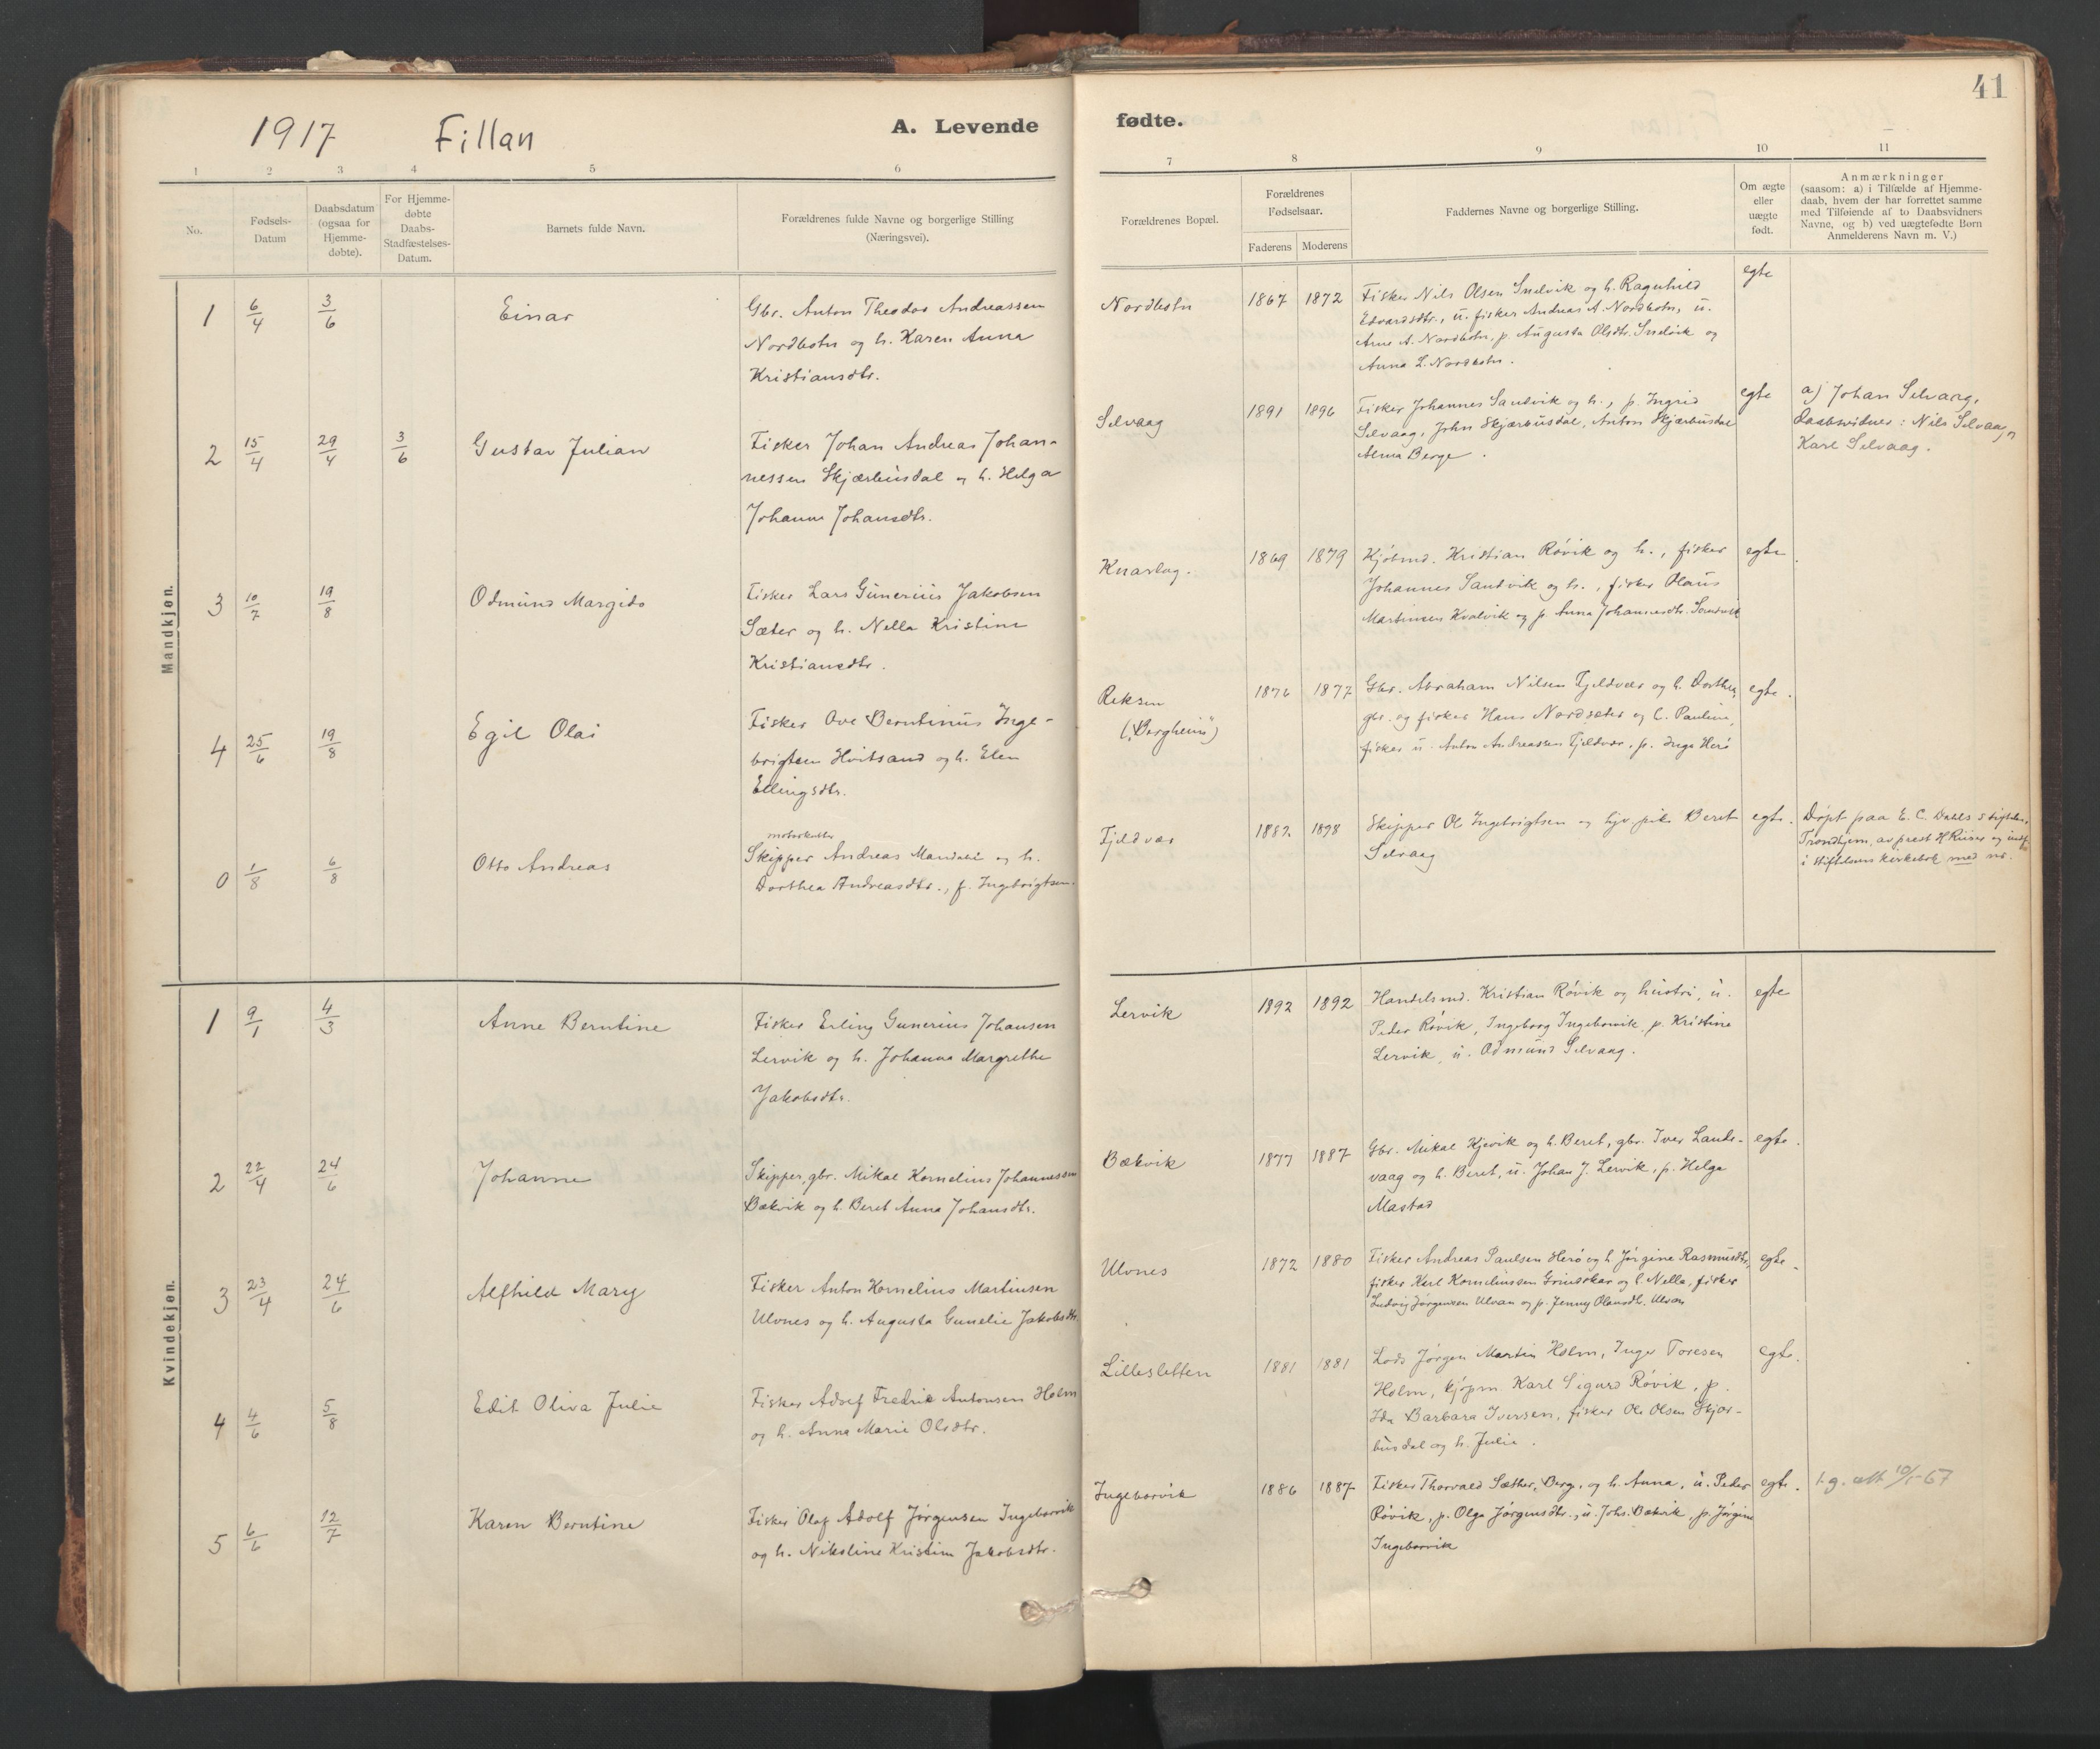 1917 Fillan A. Levende fødte. 41
1 2 3 4 5 6 7 8 9 10 11
No.
Fødsels-
Datum
Daabsdatum
(ogsaa for
Hjemme-
døbte).
For Hjemme-
døbte
Daabs-
Stadfæstelses-
Datum.
Barnets fulde Navn.
Forældrenes fulde Navne og borgerlige Stilling
(Næringsvei).
Forældrenes Bopæl.
Forældrenes
Fødselsaar.
Faderens Moderens
Faddernes Navne og borgerlige Stilling.
Om ægte
eller
uægte
født.
Anmærkninger
(saasom: a) i Tilfælde af Hjemme-
daab, hvem der har forrettet samme
med Tilføiende af to Daabsvidners
Navne, og b) ved uægtefødte Børn
Anmelderens Navn m. V.)
Mandkjøn.
1 6/4 3/6 Einar
Gbr. Anton Theodor Andreassen
Nordbotn og h. Karen Anna
Kristiansdtr.
Nordbotn 1867 1872
Fisker Nils Olsen Snelvik og h. Ragnhild
Edvardsdtr., u. fisker Andreas A. Nordbotn, u.
Arne A. Nordbotn, p. Augusta Olsdtr. Snelvik og
Anna L. Nordbotn.
egte
2 15/4 29/4 3/6 Gustav Julian
Fisker Johan Andreas Johan-
nessen Skjærbusdal og h. Helga
Johanna Johansdtr.
Selvaag 1891 1896
Fisker Johannes Sandvik og h., p. Ingrid
Selvaag, John Skjærbusdal, Anton Skjærbusdal
Alma Berge.
egte
a) Johan Selvaag,
Daabsvidner: Nils Selvaag,
Karl Selvaag.
3 10/7 19/8 Odmund Margido
Fisker Lars Gunerius Jakobsen
Sæter og h. Nella Kristine
Kristiansdtr.
Knarlag. 1869 1879
Kjøbmd. Kristian Røvik og h., fisker
Johannes Sandvik og h., fisker Olaus
Martinsen Kvalvik og p. Anna Johannesdtr. Sandvik
egte.
4 25/6 19/8 Egil Olai
Fisker Ove Berntinus Inge-
brigtsen Hvitsand og h. Elen
Ellingsdtr.
Reksen
("Bergheim")
1876 1877
Gbr. Abraham Nilsen Fjeldvær og h. Dorthea,
gbr. og fisker Hans Nordsæter og h. Pauline,
fisker u. Anton Andreassen Fjeldvær, p. Inga Herø
egte.
0 1/8 6/8 Otto Andreas
motorkutter
Skipper Andreas Mandahl og h.
Dorthea Andreasdtr., f. Ingebrigtsen.
Fjeldvær 1882 1898
Skipper Ol Ingebrigtsen og hjv pike Beret
Selvaag
egte.
Døpt paa E. C. Dahls stiftelse,
Trondhjem, av prest H Riiser og indf.
i stiftelsens kirkebok med nr.
Kvindekjøn.
1 9/1 4/3 Anne Berntine
Fisker Erling Gunerius Johansen
Lervik og h. Johanna Margrethe
Jakobsdtr.
Lervik 1892 1892
Handelsmd. Kristian Røvik og hustru, u.
Peder Røvik, Ingeborg Ingeborvik, p. Kristine
Lervik, u. Odmund Selvaag.
egte
2 22/4 24/6 Johanne
Skipper, gbr. Mikal Kornelius Johannessen
Bækvik og h. Beret Anna Johansdtr.
Bækvik 1877 1887
Gbr. Mikal Kjevik og h. Beret, gbr. Iver Lands-
vaag og h. Beret, u. Johan J. Lervik, p. Helga
Mastad
egte.
3 23/4 24/6 Alfhild Mary
Fisker Anton Kornelius Martinsen
Ulvnes og h. Augusta Gunelie Jakobsdtr.
Ulvnes 1872 1880
Fisker Andreas Paulsen Herø og h Jørgine Rasmusdtr,
fisker Karl Korneliussen Grindskar og h. Nella, fisker
Ludvig Jørgensen Ulvan og p. Jenny Olausdtr. Ulvan
egte.
4 4/6 5/8 Edit Oliva Julie
Fisker Adolf Fredrik Antonsen Holm
og h. Anna Marie Olsdtr.
Lillesletten 1881 1881
Lods Jørgen Martin Holm, Inger Toresen
Holm, kjøpm. Karl Sigurd Røvik, p.
Ida Barbara Iversen, fisker Ole Olsen Skjær-
busdal og h. Julie.
egte.
5 6/6 12/7 Karen Berntine
Fisker Olaf Adolf Jørgensen Ingeborvik
og h. Nikoline Kristine Jakobsdtr.
Ingeborvik 1886 1887
Fisker Thorvald Sæther, Berg, og h. Anna, u. Peder
Røvik, p. Olga Jørgensdtr., u. Johs. Bækvik, p. Jørgine
Ingeborvik
egte.
t.g. att 10/5-67